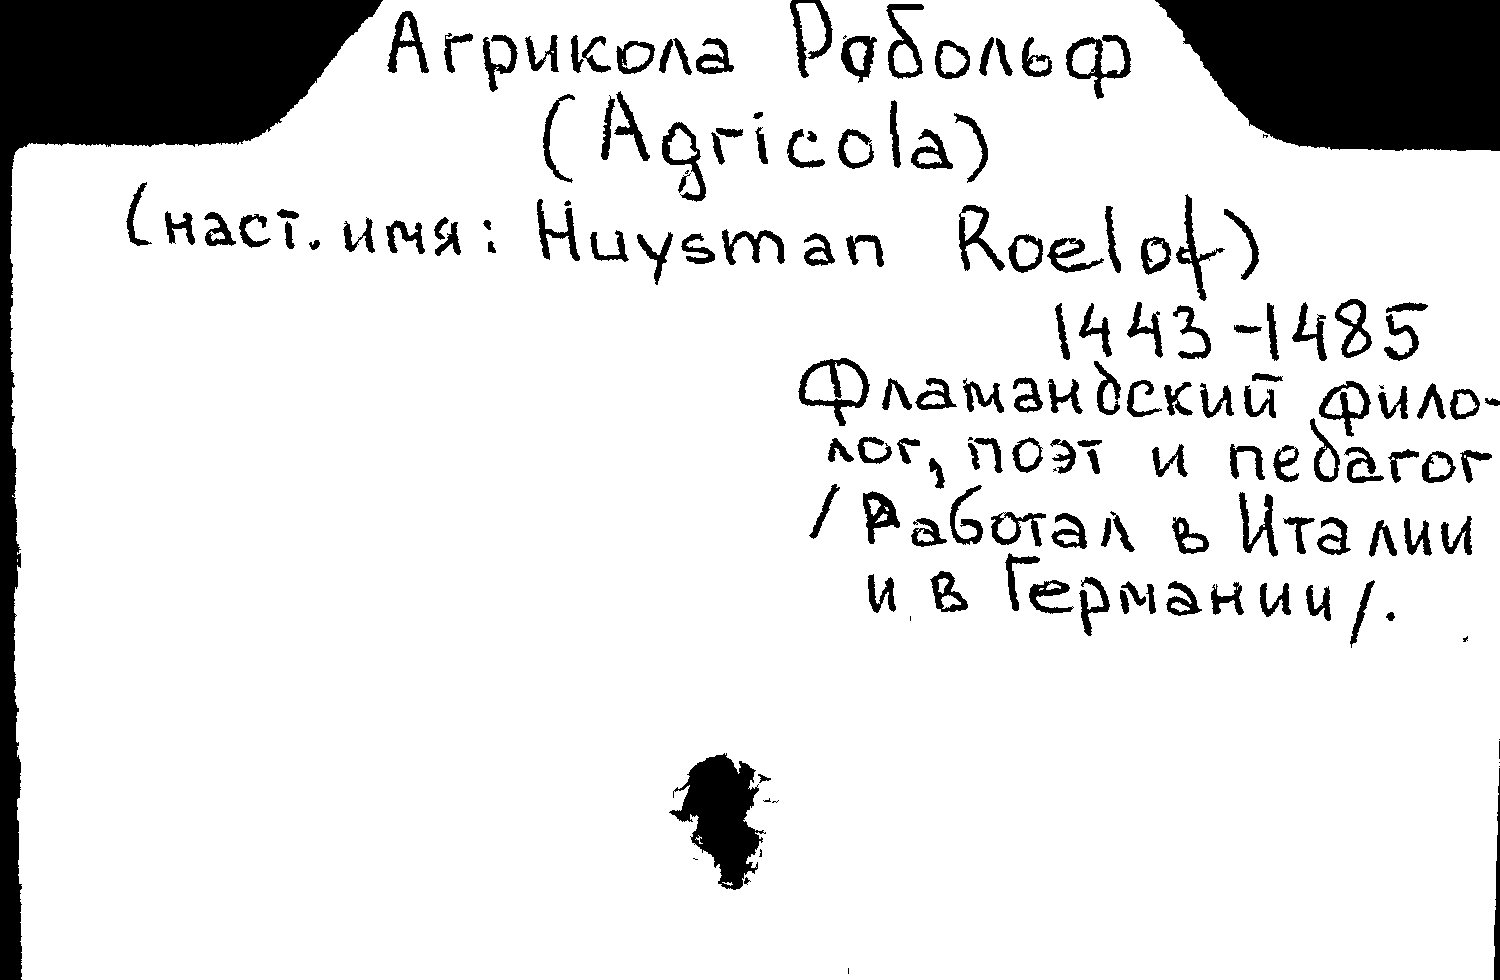 Агрикола Родольф
(Agricola)
(наст. имя: Huysman Roelof)
1443-1485
Фламандский фило-
лог, поэт и педагог
/Работал в Италии
и в Германии/.